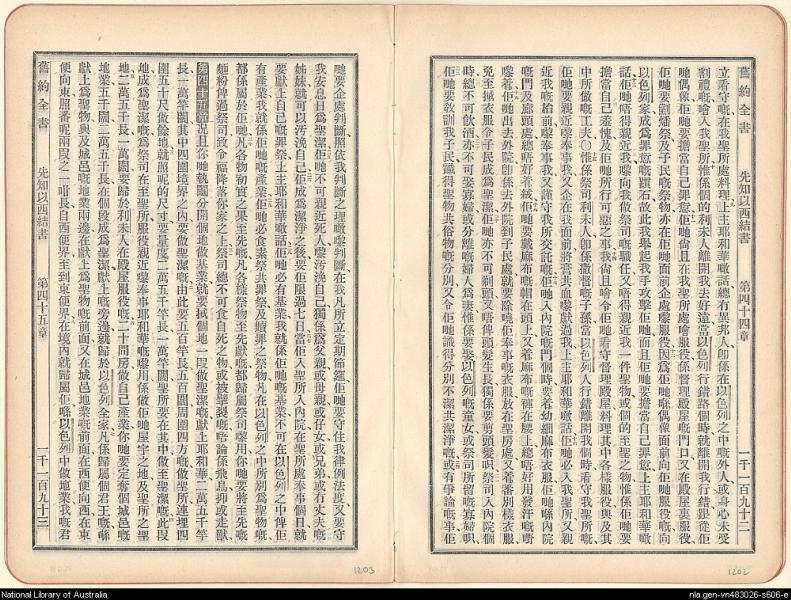 舊約全書 先知以西結書 第四十四章 一千一百九十三
立看守嘅在我聖所處料理上主耶和華噉話總有異邦人卽係在以色列之中嘅外人或身心未受
割禮嘅唔入我聖所惟係個的利未人離開我去好遠當以色列行錯路個時就離開我行錯跟從佢
哋偶像佢哋要擔當自己罪愆佢哋尙且在我聖所處喺服役係督理殿屋嘅門口又在殿屋裏服役
佢哋要劏燔祭及子民嘅祭物亦在佢哋面前企處嚟服役因爲佢哋喺偶像面前向佢哋服役嘅向
以色列家成爲罪愆嘅躓石故此我舉起我手攻擊佢哋而且佢哋要擔當自己罪愆上主耶和華噉
話佢哋唔得親近我嚟向我做祭司嘅職任又唔得親近我一件聖物或個的至聖之物惟係佢哋要
擔當自己羞愧及佢哋所行可惡之事我尙且
中所做嘅工夫〇惟係祭司利未人卽係撒督嘅子孫當以色列人行錯離開我個時看守我聖所嘅
佢哋要親近我嚟奉事我又企在我面前將膏共血嚟獻過我上主耶和華噉話佢哋必入我聖所又親
近我嘅枱前嚟奉事我又謹守我所交託嘅佢哋入內院嘅門個時要着幼細麻布衣服佢哋喺內院
嘅門及廊頭處總唔好着羢佢哋要戴麻布嘅帽在頭上又着麻布嘅褲在腰上總唔好用發汗嘅嘢
嚟着佢哋出去外院卽係去外院到子民處就要除曉佢奉事嘅衣服放在聖房處又着番別樣衣服
免至揻衣服令子民成爲聖潔佢哋亦不可剃頭又唔俾頭髮生長獨係要剪頭髮呮祭司入內院個
時總不可飲酒亦不可娶寡婦或分離嘅婦人爲妻惟係要娶以色列嘅童女或祭司所留嘅寡婦呮
佢哋要敎訓我子民識得聖物共俗物嘅分別又令佢哋識得分別不潔共潔淨嘅或有爭論嘅事佢
1202
哋要企處判斷照依我判斷之理嚟判斷在我凡所立定期節鑑佢哋要守住我律例法度又要守
我安息日爲聖潔佢哋不可親近死人嚟污洩自己獨係爲父親或母親或仔女或兄弟或冇丈夫嘅
姊妹就可以污洩自己佢成爲潔淨之後要佢限過七日當佢入聖所入內院在聖所處奉事個日就
要獻上自己嘅罪祭上主耶和華噉話佢哋必有基業我就係佢哋嘅基業不可在以色列之中俾佢
有產業我就係佢哋嘅產業佢哋必食素祭共罪祭及贖罪之祭物凡在以色列之中所別爲聖物嘅
都係屬於佢哋凡各物初實之果至先嘅凡各樣祭物至先獻嘅都歸屬祭司嚟用你哋要將至先嘅
麵粉俾過祭司致令福降落你家之上祭司總不可食自死之物或被擘裂嘅唔論係飛鳥抑或走獸
第四十五章 況且你哋執鬮分開個地做基業就要拭個地一叚做聖潔嘅獻上耶和華二萬五千竿
長一萬竿闊其中四圍境界之內要做聖潔嘅由此要五百竿長五百闊周圍四方嘅做聖所連埋四
圍五十尺做餘地就照呢的尺寸要量度二萬五千竿長一萬竿闊聖所要在其中做至聖潔嘅此叚
地成爲聖潔嘅爲祭司在至聖所服役親近嚟奉事耶和華嘅嚟用係做佢哋屋宇之地及聖所之聖
地二萬五千長一萬闊要歸於利未人在殿屋服役嘅二十間房做自己產業你哋要定奪個城邑嘅
地業五千闊二萬五千長在個叚成爲聖潔獻上嘅旁邊就歸於以色列全家凡係歸屬個君王嘅喺
獻上爲聖物與及城邑嘅地業兩邊在獻上爲聖物嘅前面又在城邑地業嘅前面在西便向西在東
便向東照番呢兩叚之一咁長自西便界至到東便界在境內就歸屬佢喺以色列中做地業我嘅君
舊約全書 先知以西結書 第四十五章 一千一百九十三
1203
National Library of Australia
nla.gen-vn483026-s606-e